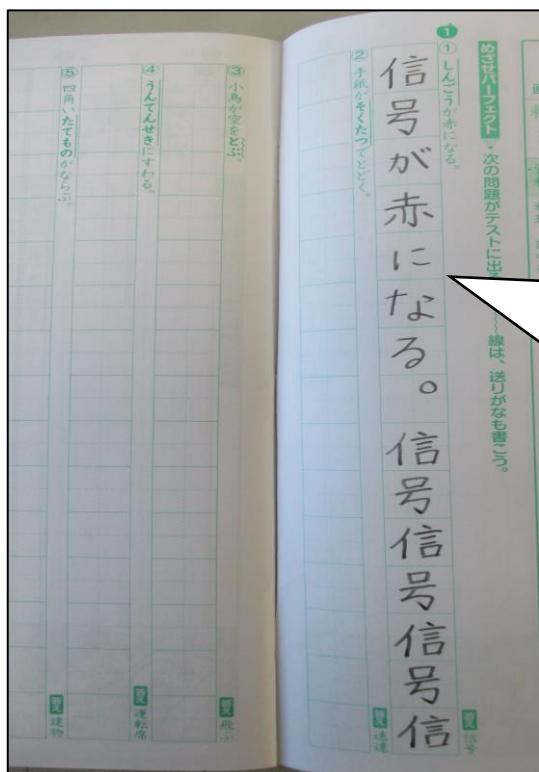 めざせパーフェクト ・次の問題がテストに出
線は、送りがなも書こう。
1
① しんごうが赤になる。
信号が赤になる。信号信号信号信
答え 信号
② 手紙がそくたつでとどく。
答え 速達
③ 小鳥が空をとぶ。
答え 飛ぶ
④ うんてんせきにすわる。
答え 運転席
⑤ 四角いたてものがならぶ。
答え 建物